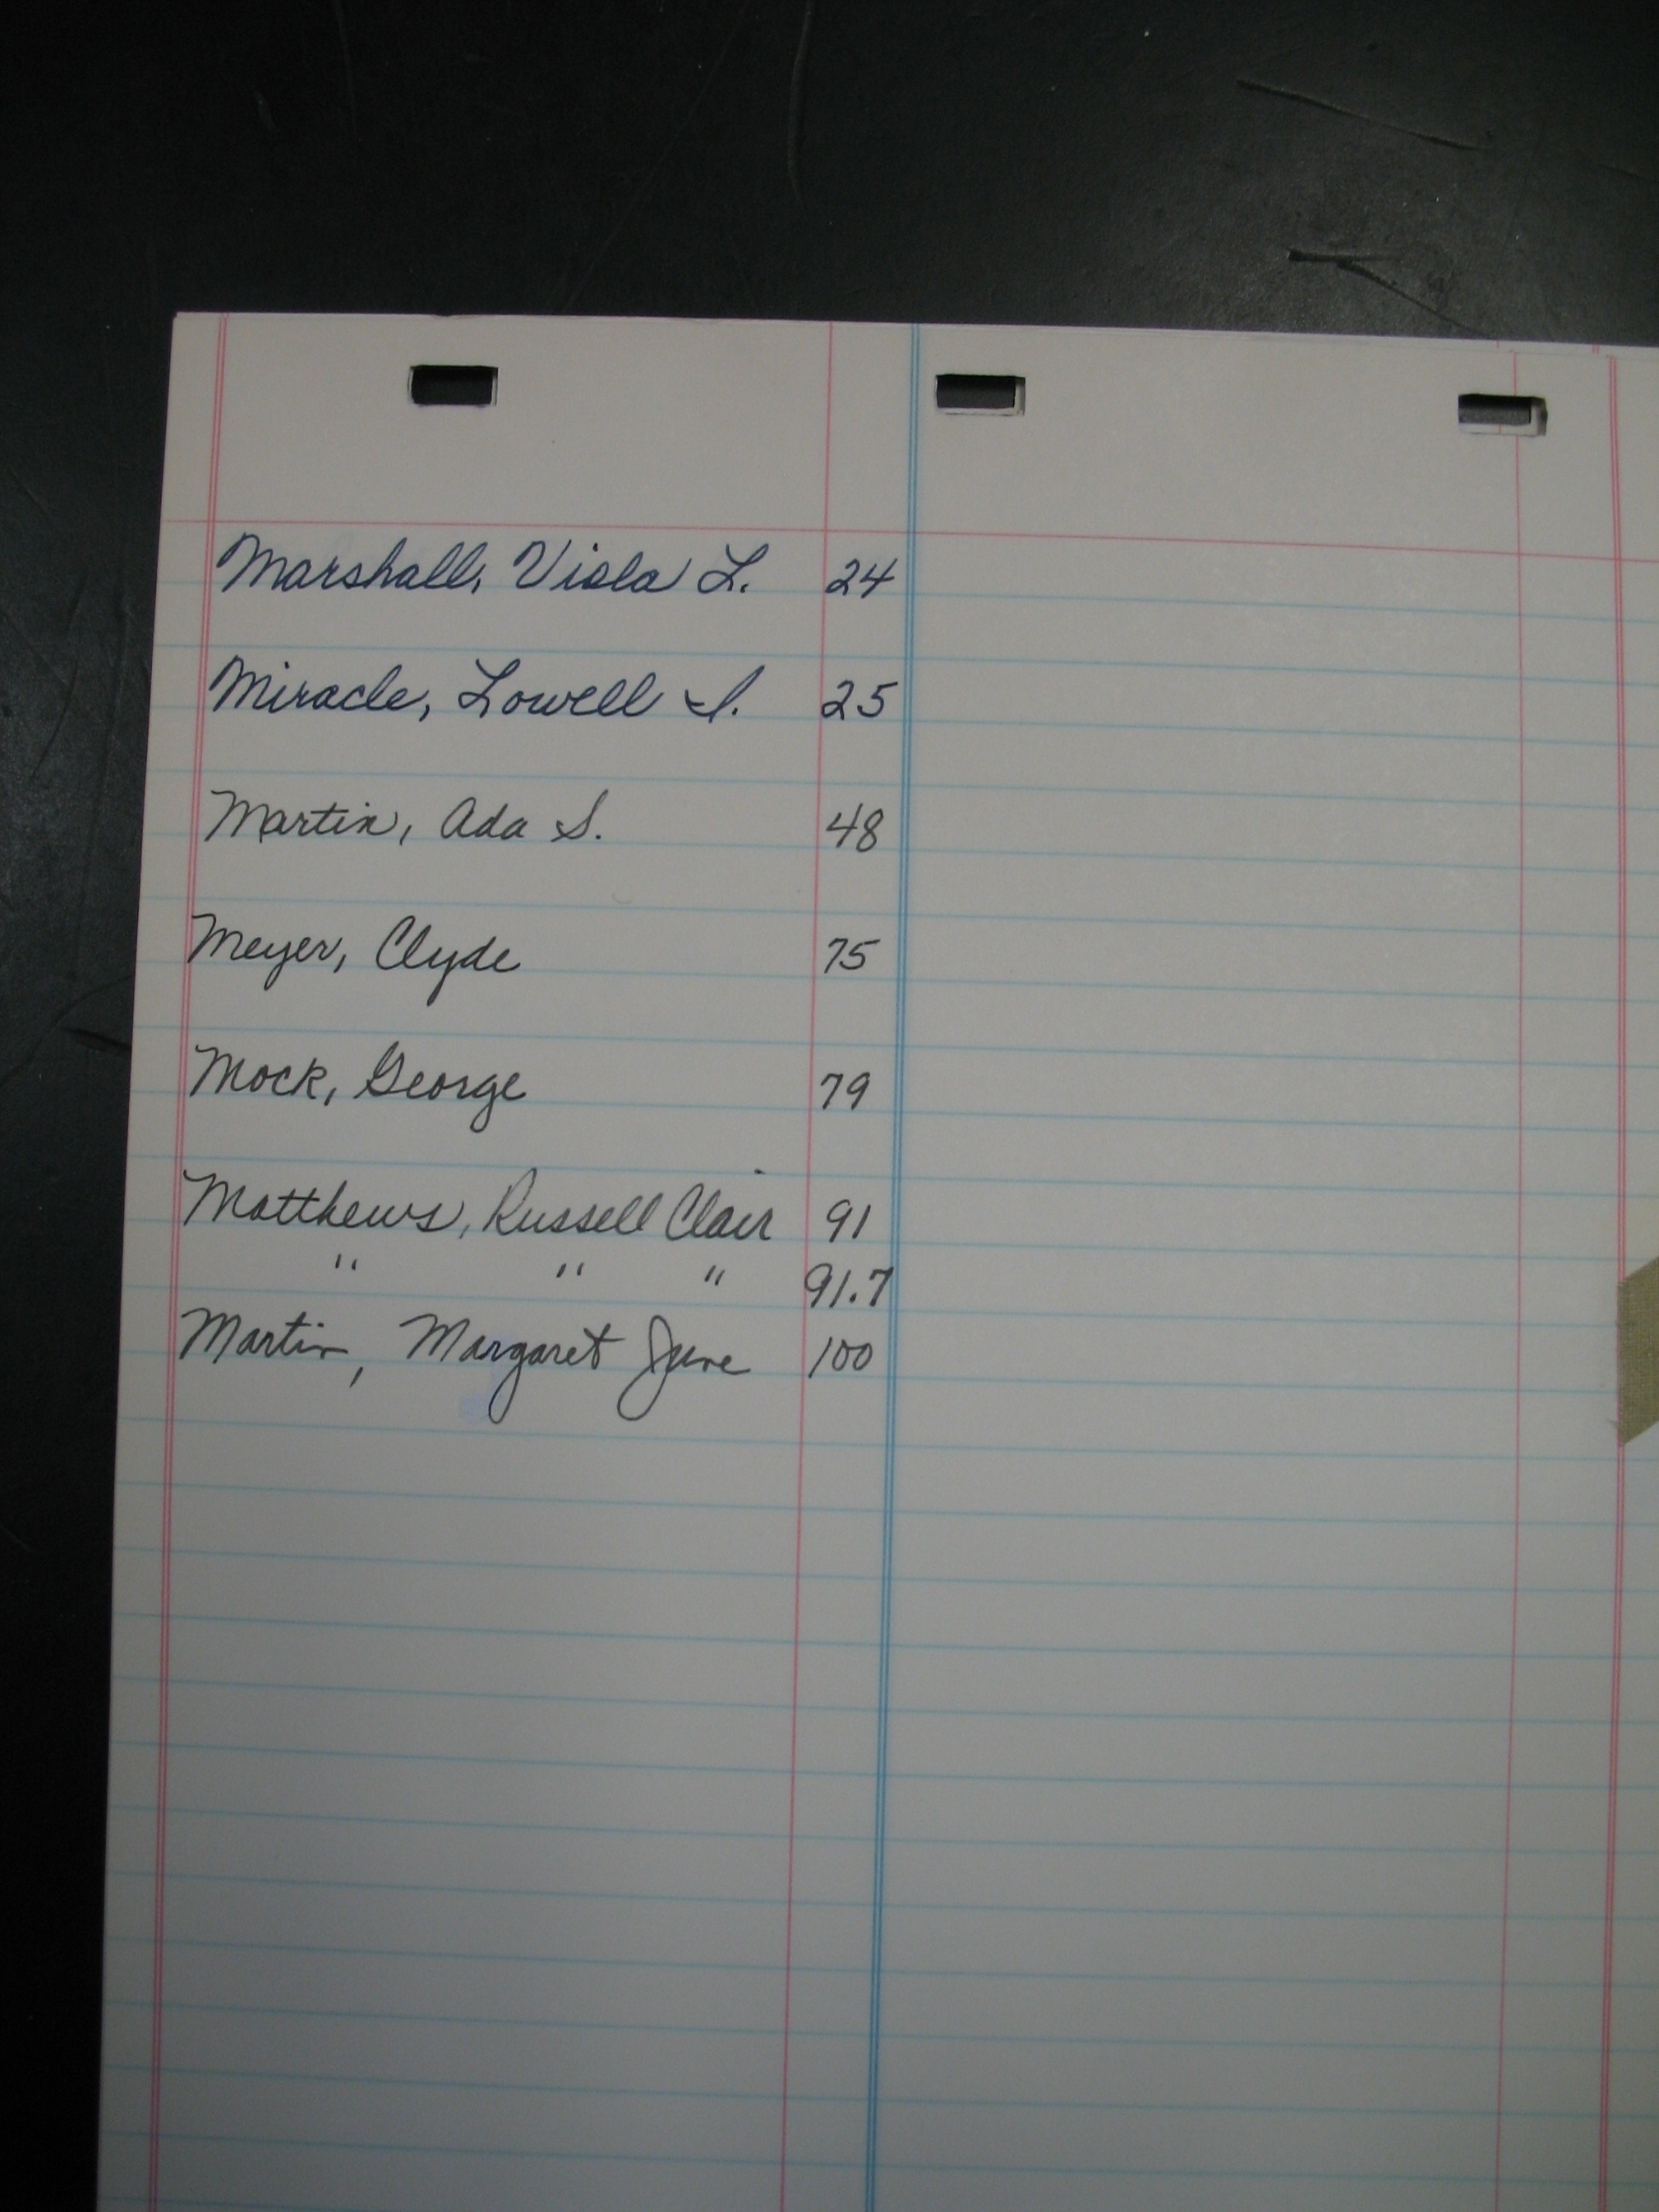 Marshall, Viola L. 24
Miracle, Lowell I. 25
Martin, Ada S. 48
Meyer, Clyde 75
Mock, George 79
Matthews, Russell Clair 91
" " " 91.7
Martin, Margaret June 100